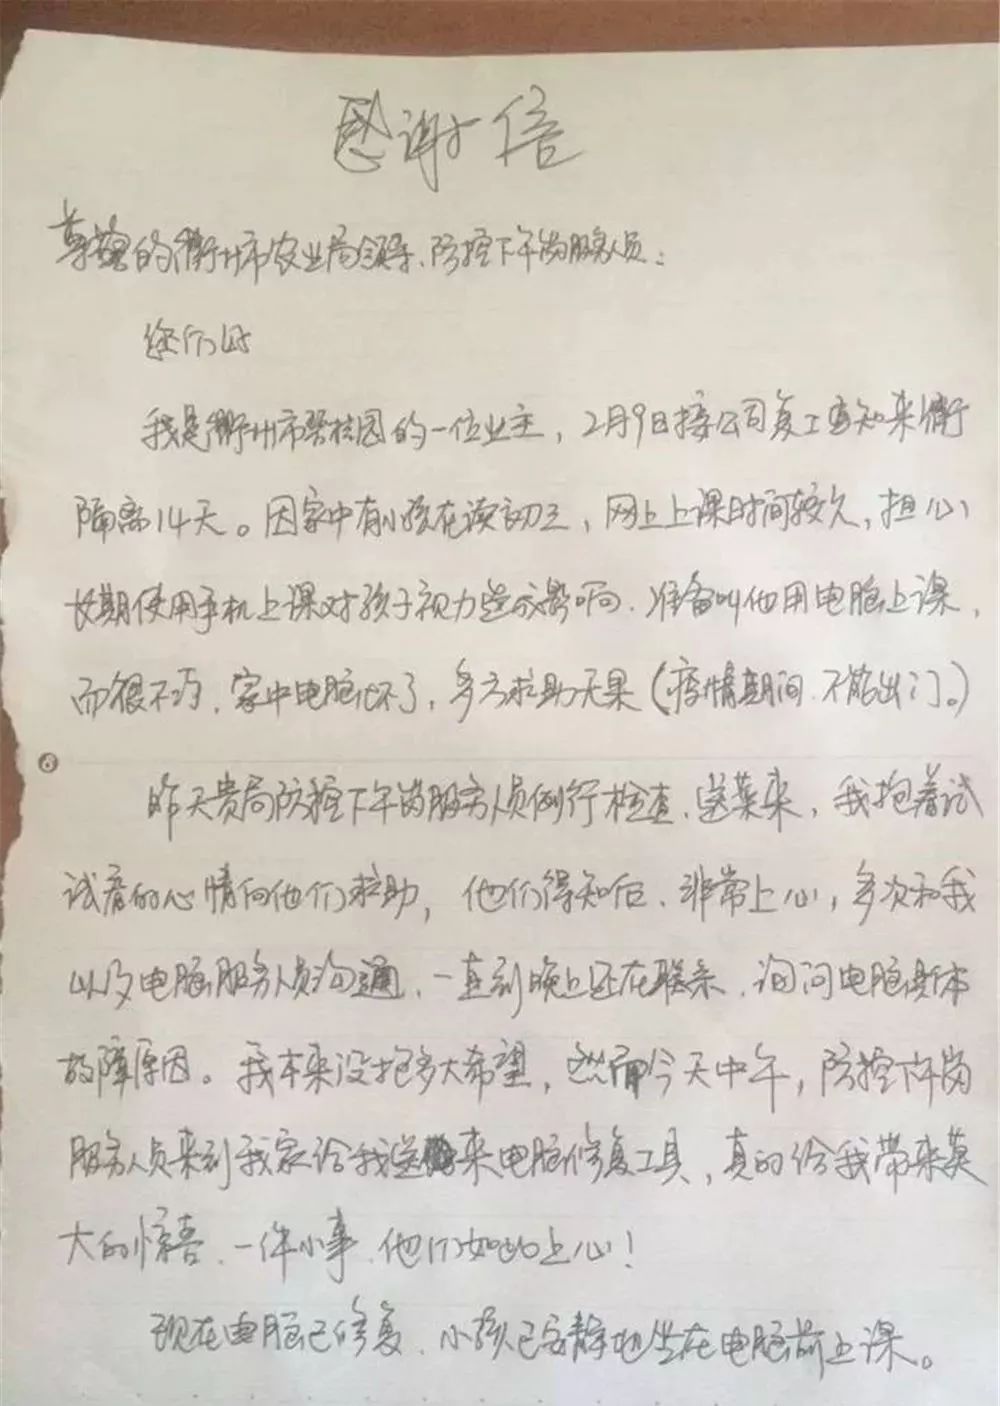 感谢信
尊敬的衢州市农业局领导、防控下午岗服务员：
您们好
我是衢州市碧桂园的一位业主，2月9日接公司复工通知来衢
隔离14天。因家中有小孩在读初三，网上上课时间较久，担心
长期使用手机上课对孩子视力造成影响、准备叫他用电脑上课，
而很不巧，家中电脑坏了，多方求助无果（疫情期间、不能出门。）
8
昨天贵局防控下午岗服务人员例行检查、送菜来，我抱着试
试看的心情向他们求助，他们得知后、非常上心，多次和我
以及电脑服务人员沟通、一直到晚上还在联系、询问电脑具体
故障原因。我本来没抱多大希望，然而今天中午，防控下午岗
服务人员来到我家给我送来电脑修复工具，真的给我带来莫
大的惊喜、一件小事、他们如此上心！
现在电脑已修复、小孩已安静地坐在电脑前上课。